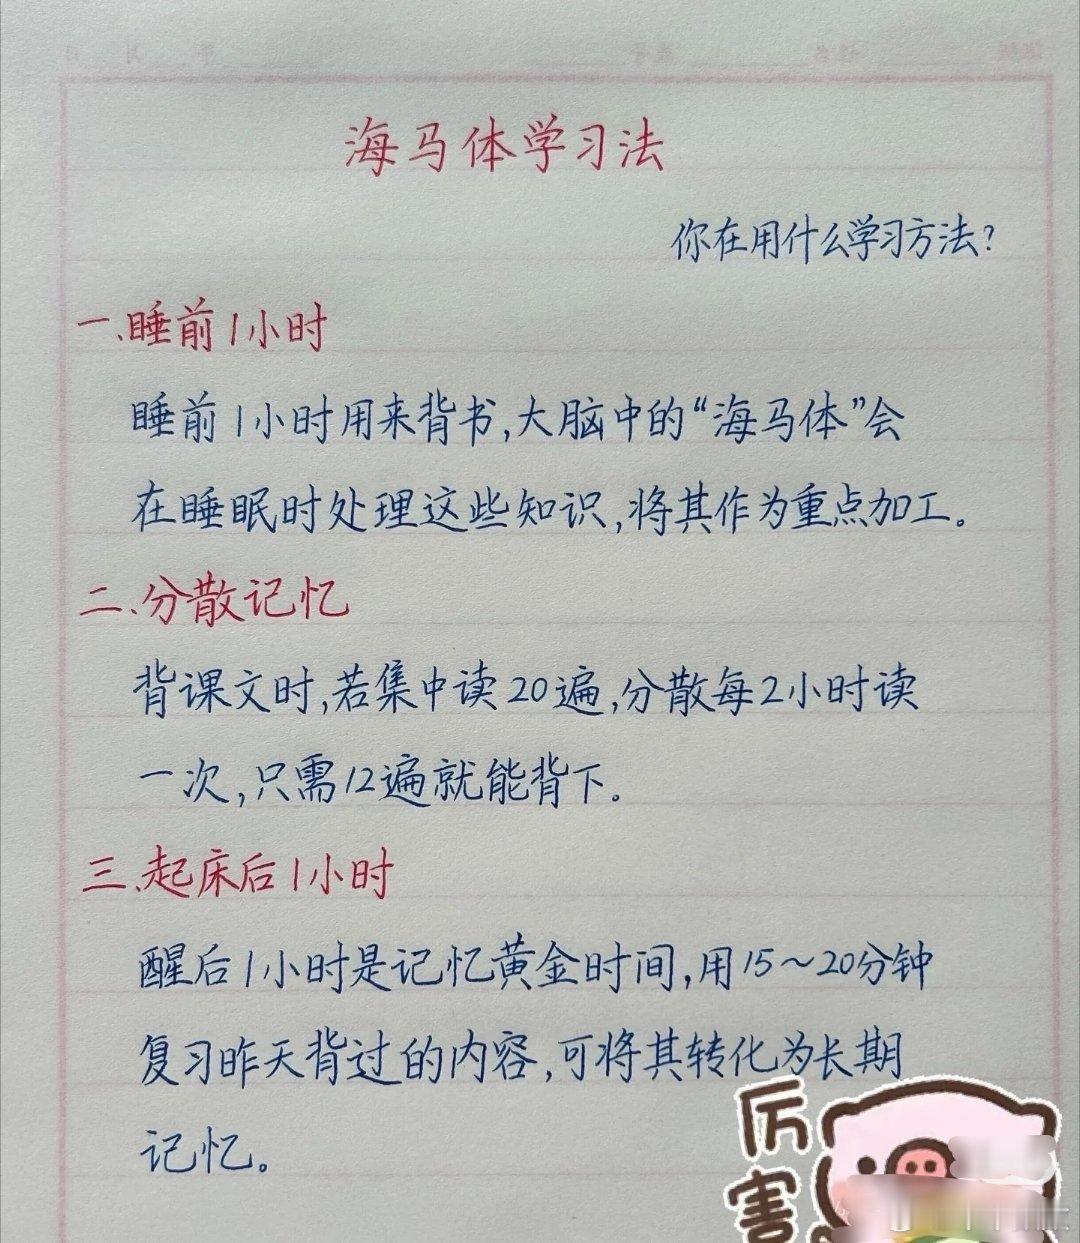 海马体学习法
你在用什么学习方法？
一、睡前1小时
睡前1小时用来背书,大脑中的“海马体”会
在睡眠时处理这些知识,将其作为重点加工。
二、分散记忆
背课文时,若集中读20遍,分散每2小时读
一次,只需12遍就能背下。
三、起床后1小时
醒后1小时是记忆黄金时间,用15～20分钟
复习昨天背过的内容,可将其转化为长期
记忆。
厉害